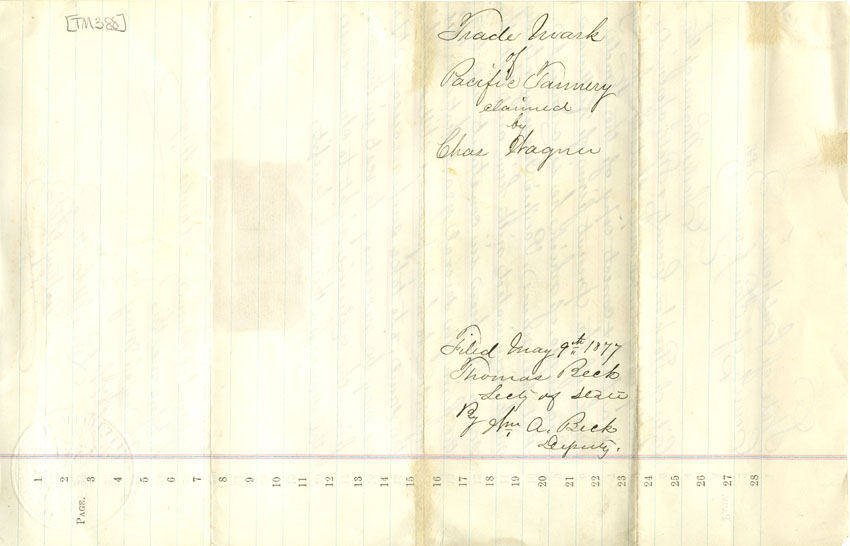 [TM388]
Trade Mark
of
Pacific Tannery
claimed
by
Chas Wagner
Filed May 9th 1877
Thomas Beck
Secty of State
By Wm A. Beck
Deputy.
PAGE.
1
2
3
4
5
6
7
8
9
10
11
12
13
14
15
16
17
18
19
20
21
22
23
24
25
26
27
28